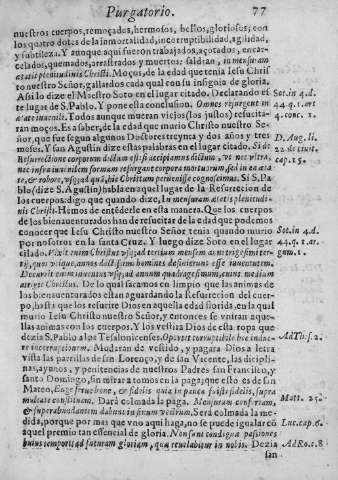 Purgatorio. 77
nuestros cuerpos, remoçados, hermosos, bellos, gloriosos; con
los quatro dotes de la inmortalidad, incorruptibilidad, agilidad,
y subtileza. Y aunque aqui fueron trabajados, açotados, encar-
celados, quemados, arrastrados y muertos: saldran, in mensuram
ætatis plenitudinis Christi. Moços, de la edad que tenia Iesu Chris
to nuestro Señor, gallardos cada qual con su insignia de gloria.
Assi lo dize el Maestro Soto en el lugar citado. Declarando es
te lugar de S. Pablo. Y pone esta conclusion. Omnes resurgent in
ætate iuuenili. Todos aunque mueran viejos (los justos) resucita-
ran moços. Es a saber, de la edad que murio Christo nuestro Se-
ñor, que fue segun algunos Doctores treynta y dos años y tres
meses. Y san Agustin dize estas palabras en el lugar citado. Si de
Resurrectione corporum dictum est: sic accipiamus dictum, vt nec vltra,
nec infra iuuenilem formam resurgant corpora mortuorum, sed in ea æta
te, & robore, vsq; ad quã, hic Christum peruenisse cognoscimus. Si S. Pa-
blo (dize S. Agustin) habla en aquel lugar de la Resureccion de
los cuerpos: digo que quando dize, In mensuram ætatis plenitudi-
nis Christi. Hemos de entẽderle en esta manera. Que los cuerpos
de los bienauenturados han de resucitar de la edad que podemos
conocer que Iesu Christo nuestro Señor tenia quando murio
por nosotros en la santa Cruz. Y luego dize Soto en el lugar
citado. Vixit enim Christus vsq; ad tertium mensem
Decurrit enim iuuentus vsq; ad annum quadragesimum, cuius medium
attigit Christus. De lo qual sacamos en limpio que las animas de
los bienauenturados estan aguardando la Resureccion del cuer-
po, hasta que los resucite Dios en aquella edad florida, en la qual
murio Iesu Christo nuestro Señor, y entonces se vniran aque-
llas animas con los cuerpos. Y los vestira Dios de esta ropa que
dezia S. Pablo a los Tesalonicenses. Oportet corruptibile hoc indue-
re incorruptionem. Mudaran de vestido, y pagara Dios a letra
vista las parrillas de san Lorenço, y de san Vicente, las diciplí-
nas, ayunos, y penitencias de nuestros Padres san Francisco, y
santo Domingo, sin mirar a tomos en la paga; que esto es de san
Mateo, Euge serue bone, & fidelis quia in pauca fuisti fidelis, supra
multa te constituam. Darà colmada la paga. Mensuram confertam,
& superabundantem dabunt in sinum vestrum. Serà colmada la me-
dida, porque por mas que vno aqui haga, no se puede igualar cõ
aquel premio tan essencial de gloria. Non sunt condignæ passiones
huius temporis ad futuram gloriam, quæ reuelabitur in nobis. Dezia
san
Sot. in 4. d.
44. q. 1. art
4. conc. 2.
D. Aug. li.
22. de ciuit.
cap. 15.
Sot. in 4. d.
44. q. 1. ar-
gum. 1.
Ad Th. 5. 2.
Matt. 25.
Luc. cap. 6.
Ad Ro. c. 8